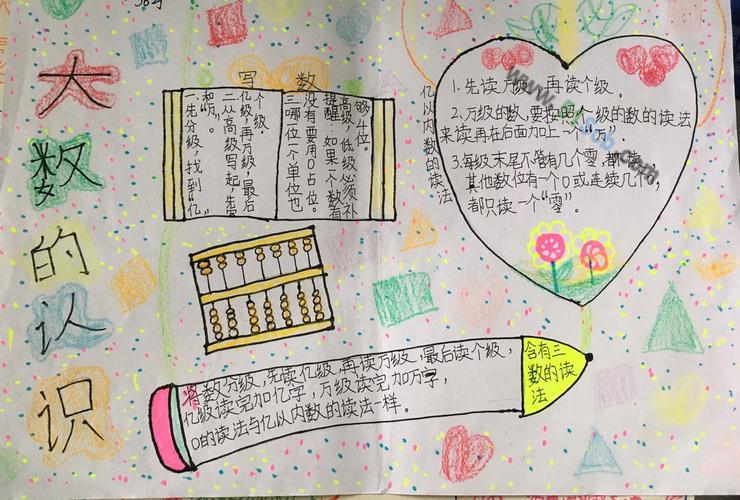 大数的认识
写数
一、先分级,找到“亿”
和“万”。
二、从高级写起,先写
亿级,再万级,最后
个级。
三、哪位一个单位也
没有要用0占位。
提醒:如果一个数有
高级,低级必须补
够4位。
亿以内数的读法
1.先读万级,再读个级。
2.万级的数,要按照个级的数的读法
来读再在后面加上一个“万”.
3.每级末尾不管有几个零,都不读
其他数位有一个0或连续几个0,
都只读一个“零”。
将数分级,先读亿级,再读万级,最后读个级,
亿级读完加亿字,万级读完加万字,
0的读法与亿以内数的读法一样。
含有三
数的读
法